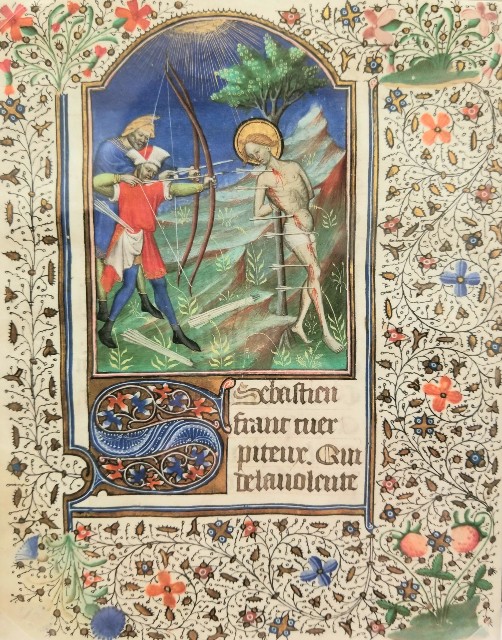 S Sebastien
franc cuer
piteux. Qui
de la volente